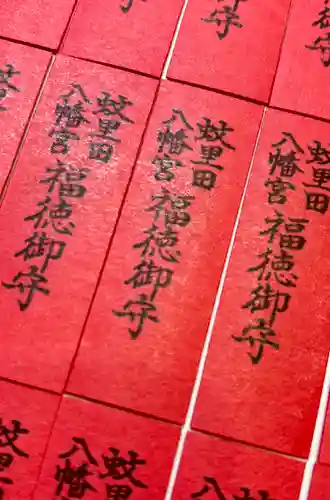 守
守
蚊里田
八幡宮
福徳御守
蚊里田
八幡宮
福徳御守
蚊里田
八幡宮
福徳御守
蚊
八幡